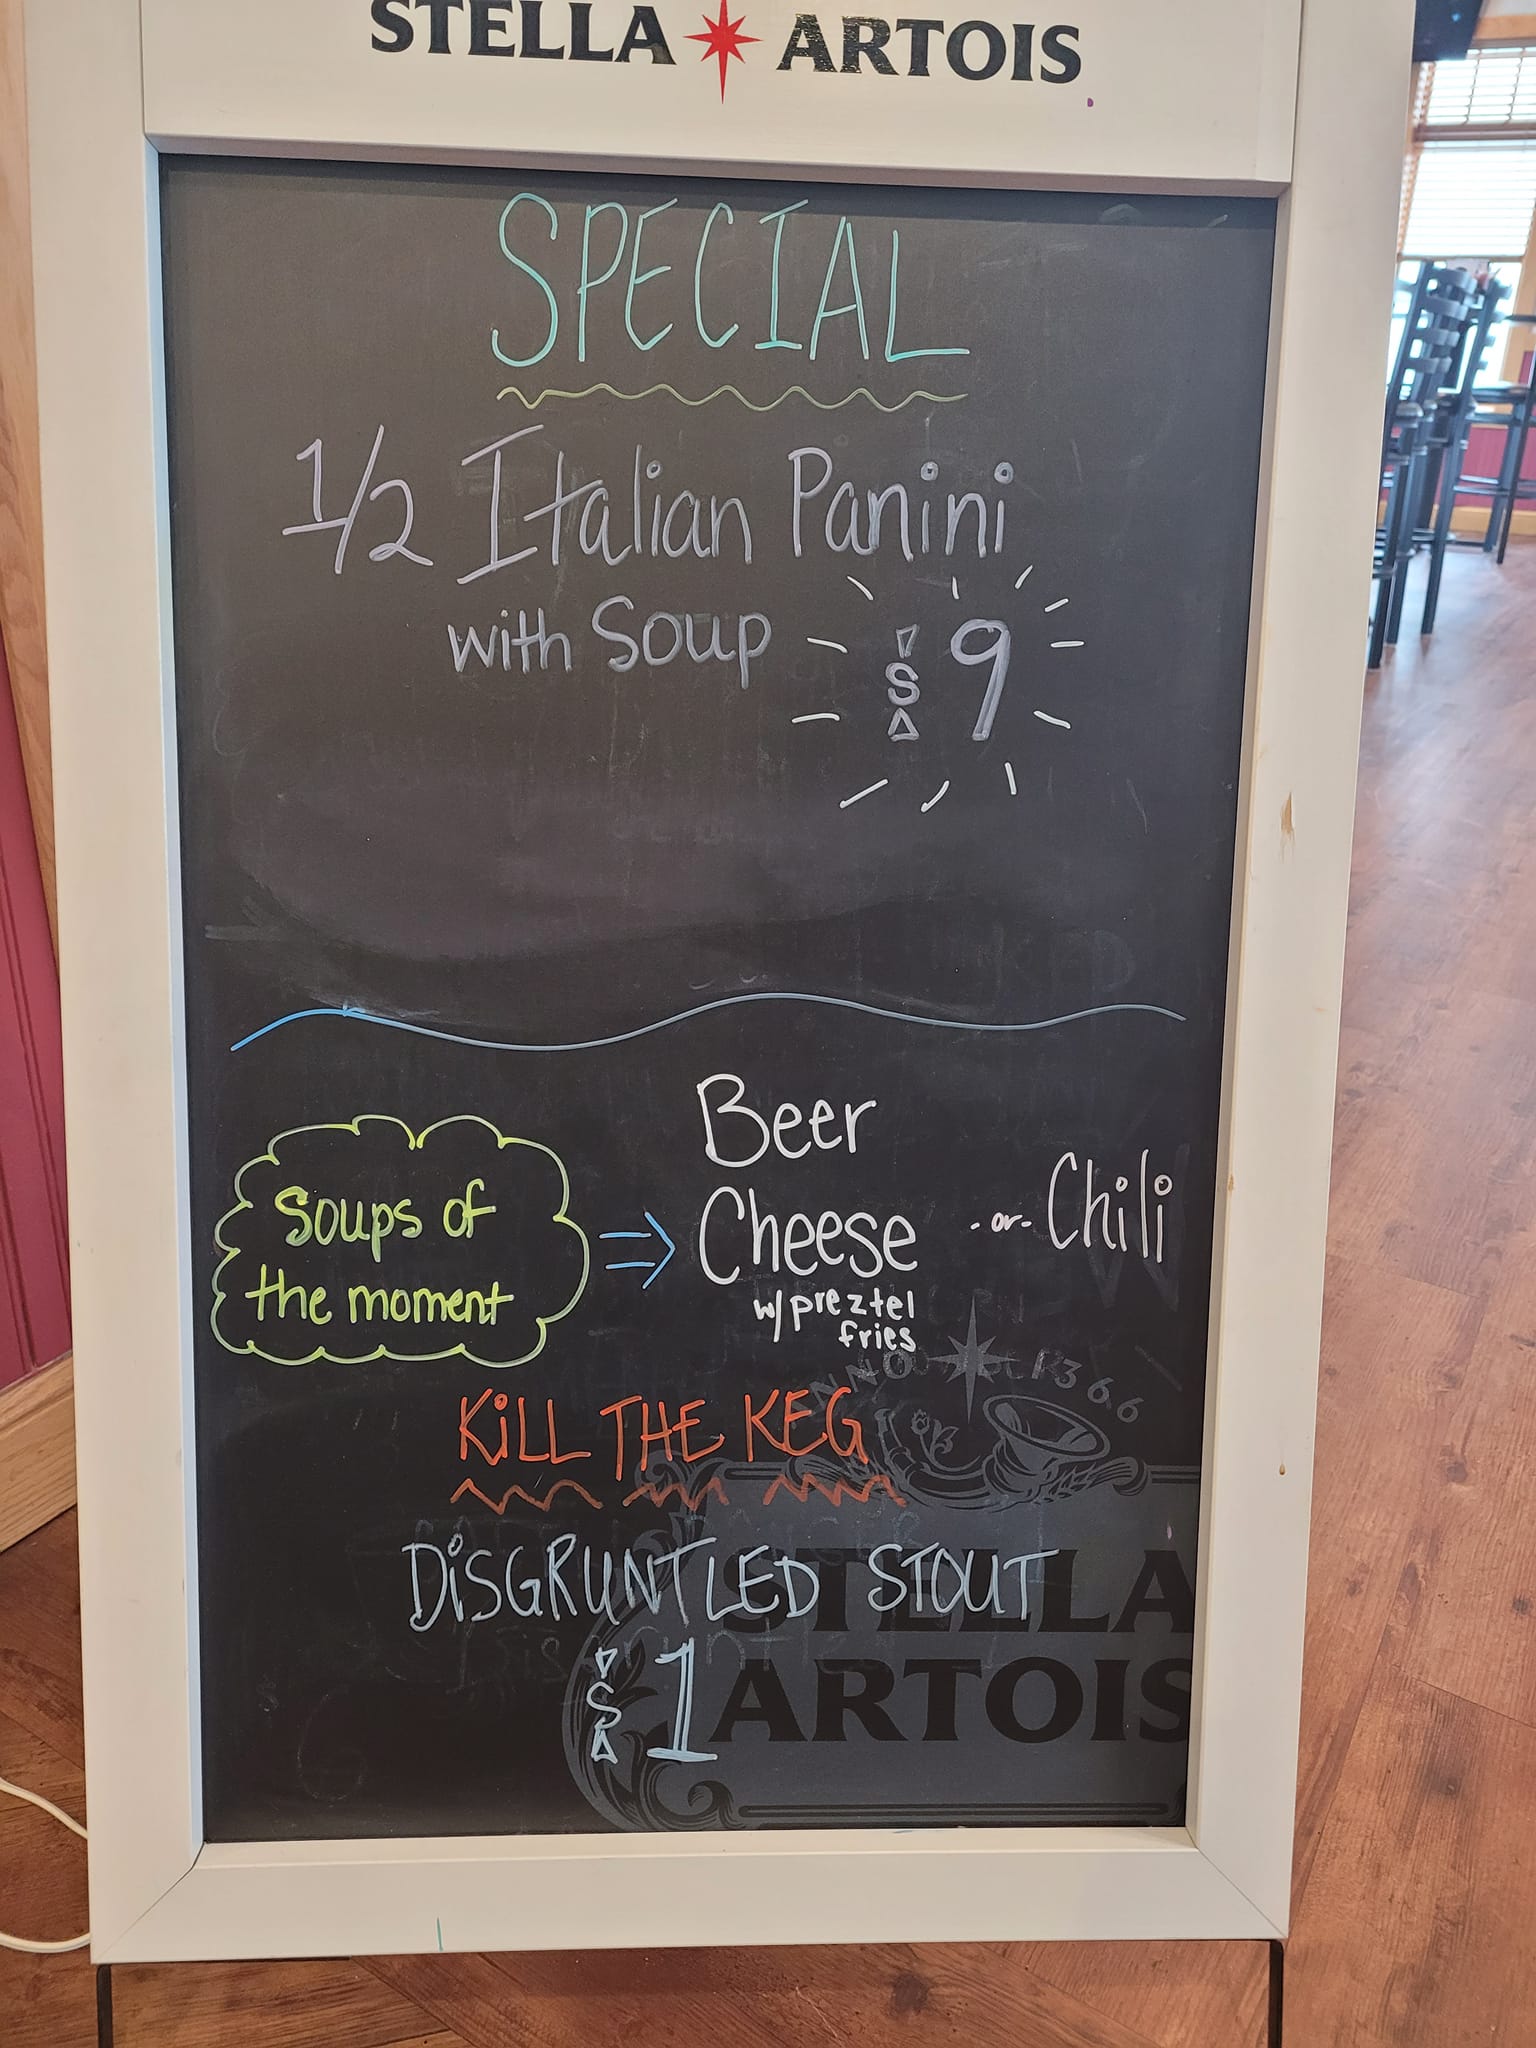 STELLA ARTOIS
SPECIAL
1/2 Italian Panini
with Soup $9
Beer
Cheese -or- Chili
w/ preztel
fries
Soups of
the moment
ANNO 1366
KiLL THE KEG
DiSGRUNTLED STOUT
$1
STELLA
ARTOIS